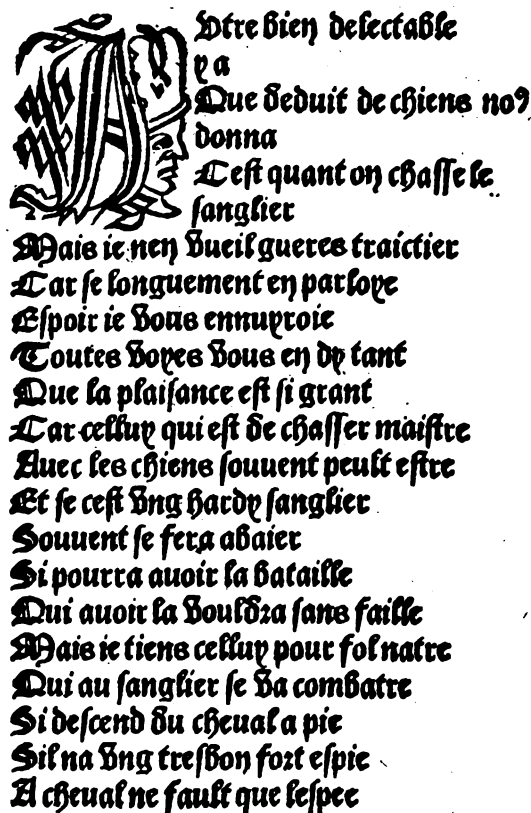 AUtre bien delectable
y a
Que deduit de chiens noꝰ
donna
Cest quant on chasse le
sanglier
Mais ie nen vueil gueres traictier
Car se longuement en parloye
Espoir ie vous ennuyroie
Toutes voyes vous en dy tant
Que la plaisance est si grant
Car celluy qui est de chasser maistre
Auec les chiens souuent peult estre
Et se cest vng hardy sanglier
Souuent se fera abaier
Si pourra auoir la bataille
Qui auoir la vouldra sans faille
Mais ie tiens celluy pour fol natre
Qui au sanglier se va combatre
Si descend du cheual a pie
Sil na vng tresbon fort espie
A cheual ne fault que lespee